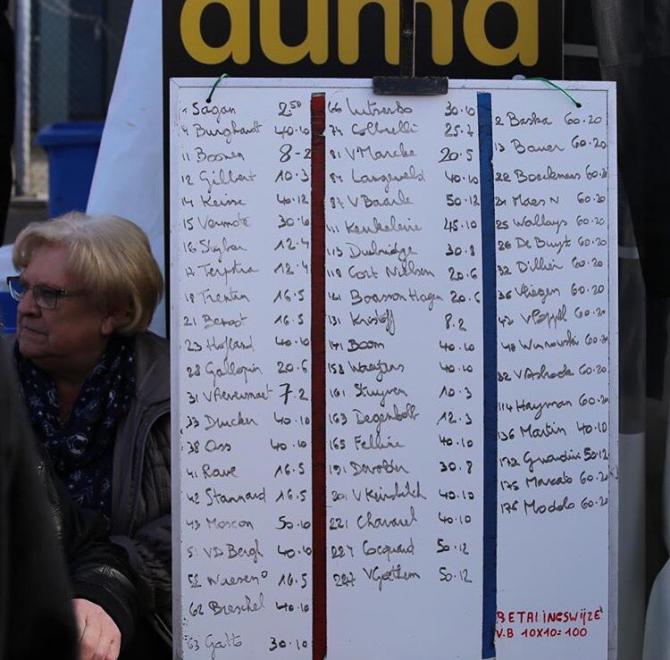 1 Sagan 2 50
4 Burghardt 40.10
11 Boonen 8-2
12 Gilbert 10.3
14 Keisse 40.12
15 Vermote 30.6
16 Stybar 12.4
17 Terpstra 12.4
18 Trentin 16.5
21 Benoot 16.5
23 Hofland 40.10
28 Gallopin 20.6
31 VAvermaet 7.2
33 Drucker 40.10
38 Oss 40.10
41 Rowe 16.5
42 Stannard 16.5
43 Moscon 50.10
51 VD Bergh 40.10
52 Naesen 16.5
62 Breschel 40.10
63 Gatto 30.10
66 Lutsenko 30.10
74 Colbrelli 25.7
81 VMarcke 20.5
84 Langeveld 40.10
87 V Baarle 50.12
111 Keukeleire 45.10
113 Durbridge 30.8
118 Cort Nielsen 20.6
121 Boasson Hagen 20.6
131 Kristoff 8.2
141 Boom 40.10
158 Waeytens 40.10
161 Stuyven 10.3
163 Degenkolb 12.3
165 Felline 40.10
191 Devolder 30.8
201 V Keirsbilck 40.10
221 Chavanel 40.10
224 Cocquard 50.12
227 VGethem 50.12
2 Baska 60.20
13 Bauer 60.20
22 Boeckmans 60.20
24 Maes N 60.20
25 Wallays 60.20
26 De Buyst 60.20
32 Dillier 60.20
36 Vliegen 60.20
42 VPoppel 60.20
48 Wisnowski 60.20
82 VAsbroeck 60.20
114 Hayman 60.20
136 Martin 40.10
172 Guardini 50.12
175 Marcato 60.20
176 Modolo 60.20
BETALINGSWIJZE
V.B 10X10=100